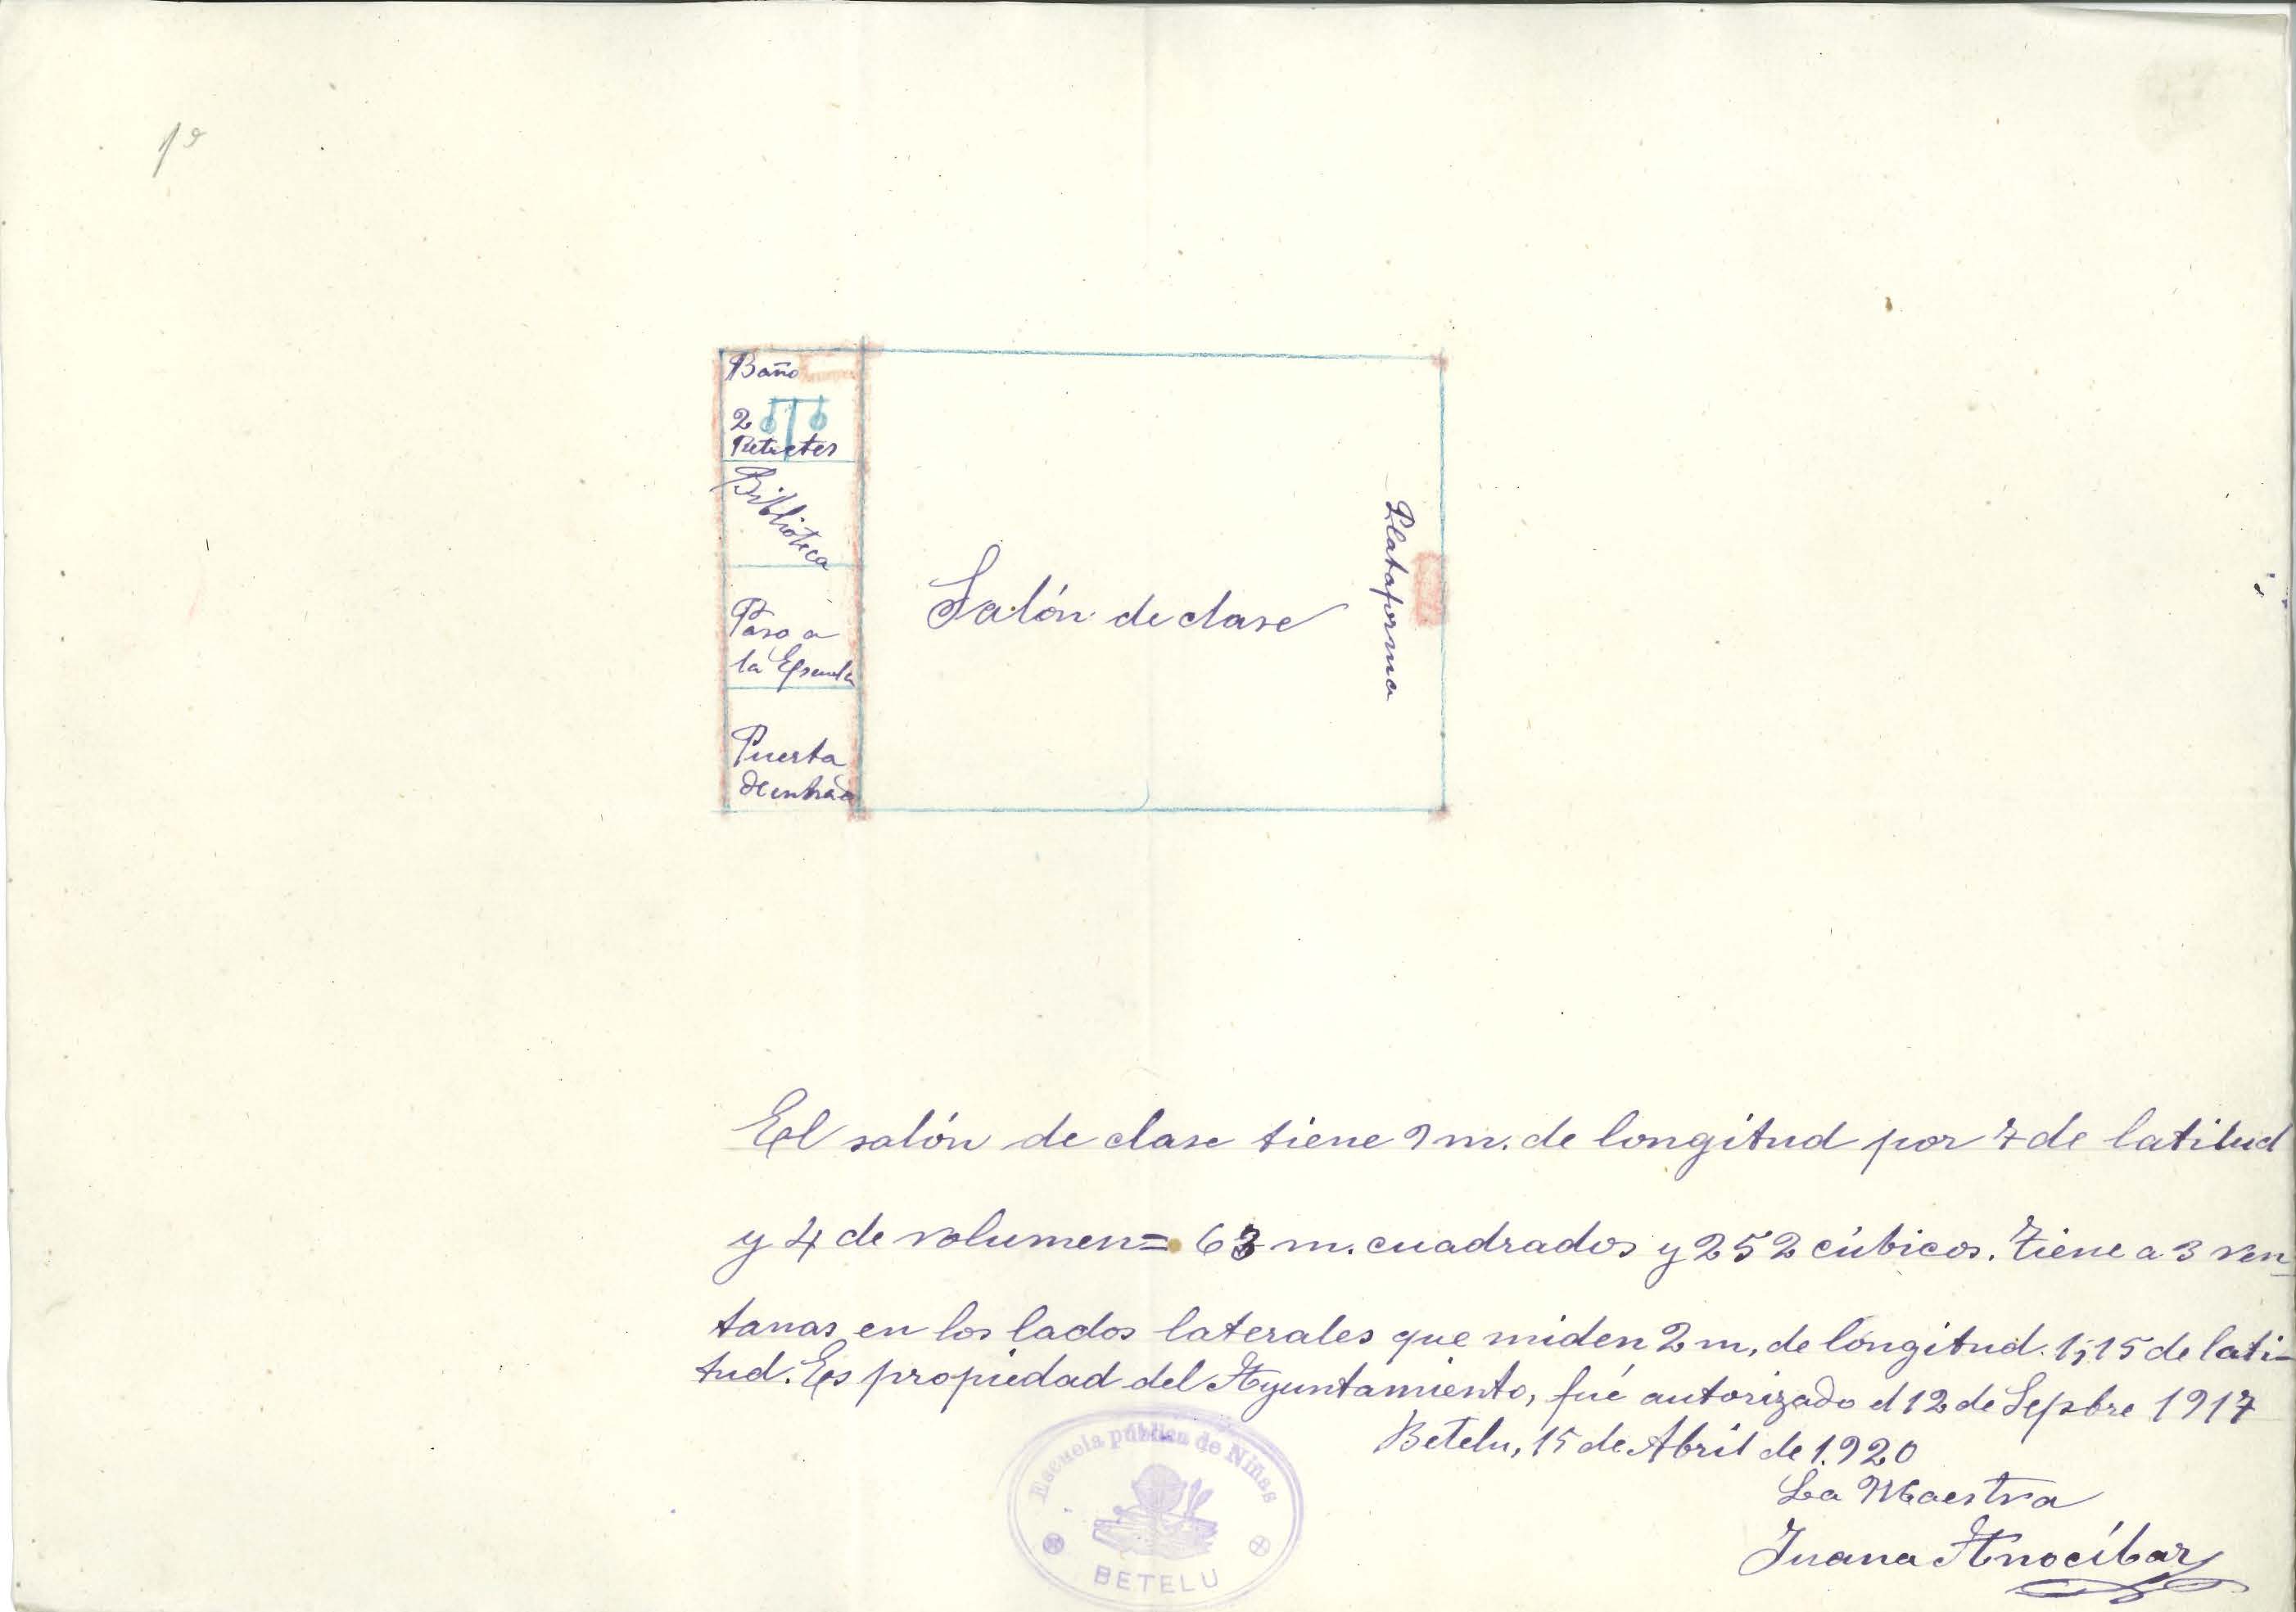 1º
Baño
2
Retretes
Biblioteca
Paso a
la Escuela
Puerta
de entrada
Salón de clase
Plataforma
El salón de clase tiene 9 m. de longitud por 7 de latitud
y 4 de volumen = 63 m. cuadrados y 252 cúbicos. Tiene a 3 ven
tanas en los lados laterales que miden 2 m, de longitud. 1,15 de lati-
tud. Es propiedad del Ayuntamiento, fué autorizado el 12 de Sepbre 1917
Betelu, 15 de Abril de 1.920
La Maestra
Juana Anocíbar
Escuela pública de Niñas
BETELU